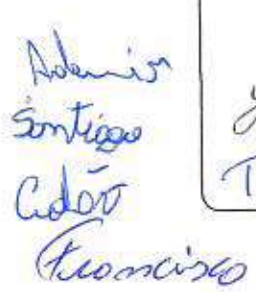 Ademir
Santiago
Cidão
Francisco